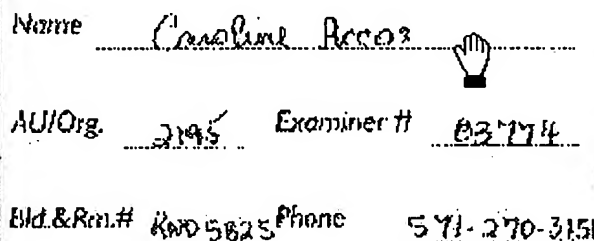 Name Caroline Arcos
AU/Org. 2195 Examiner # 83774
Bld.&Rm.# RND 5B25 Phone 571-270-3151